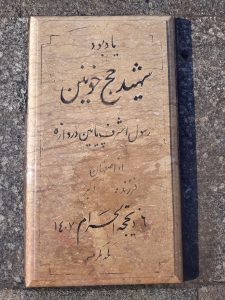 یادبود
شهید حج خونین
رسول اشرف پایین دروازه
از اصفهان
فرزند
۶ ذیحجه الحرام ۱۴۰۷
مکه مکرمه